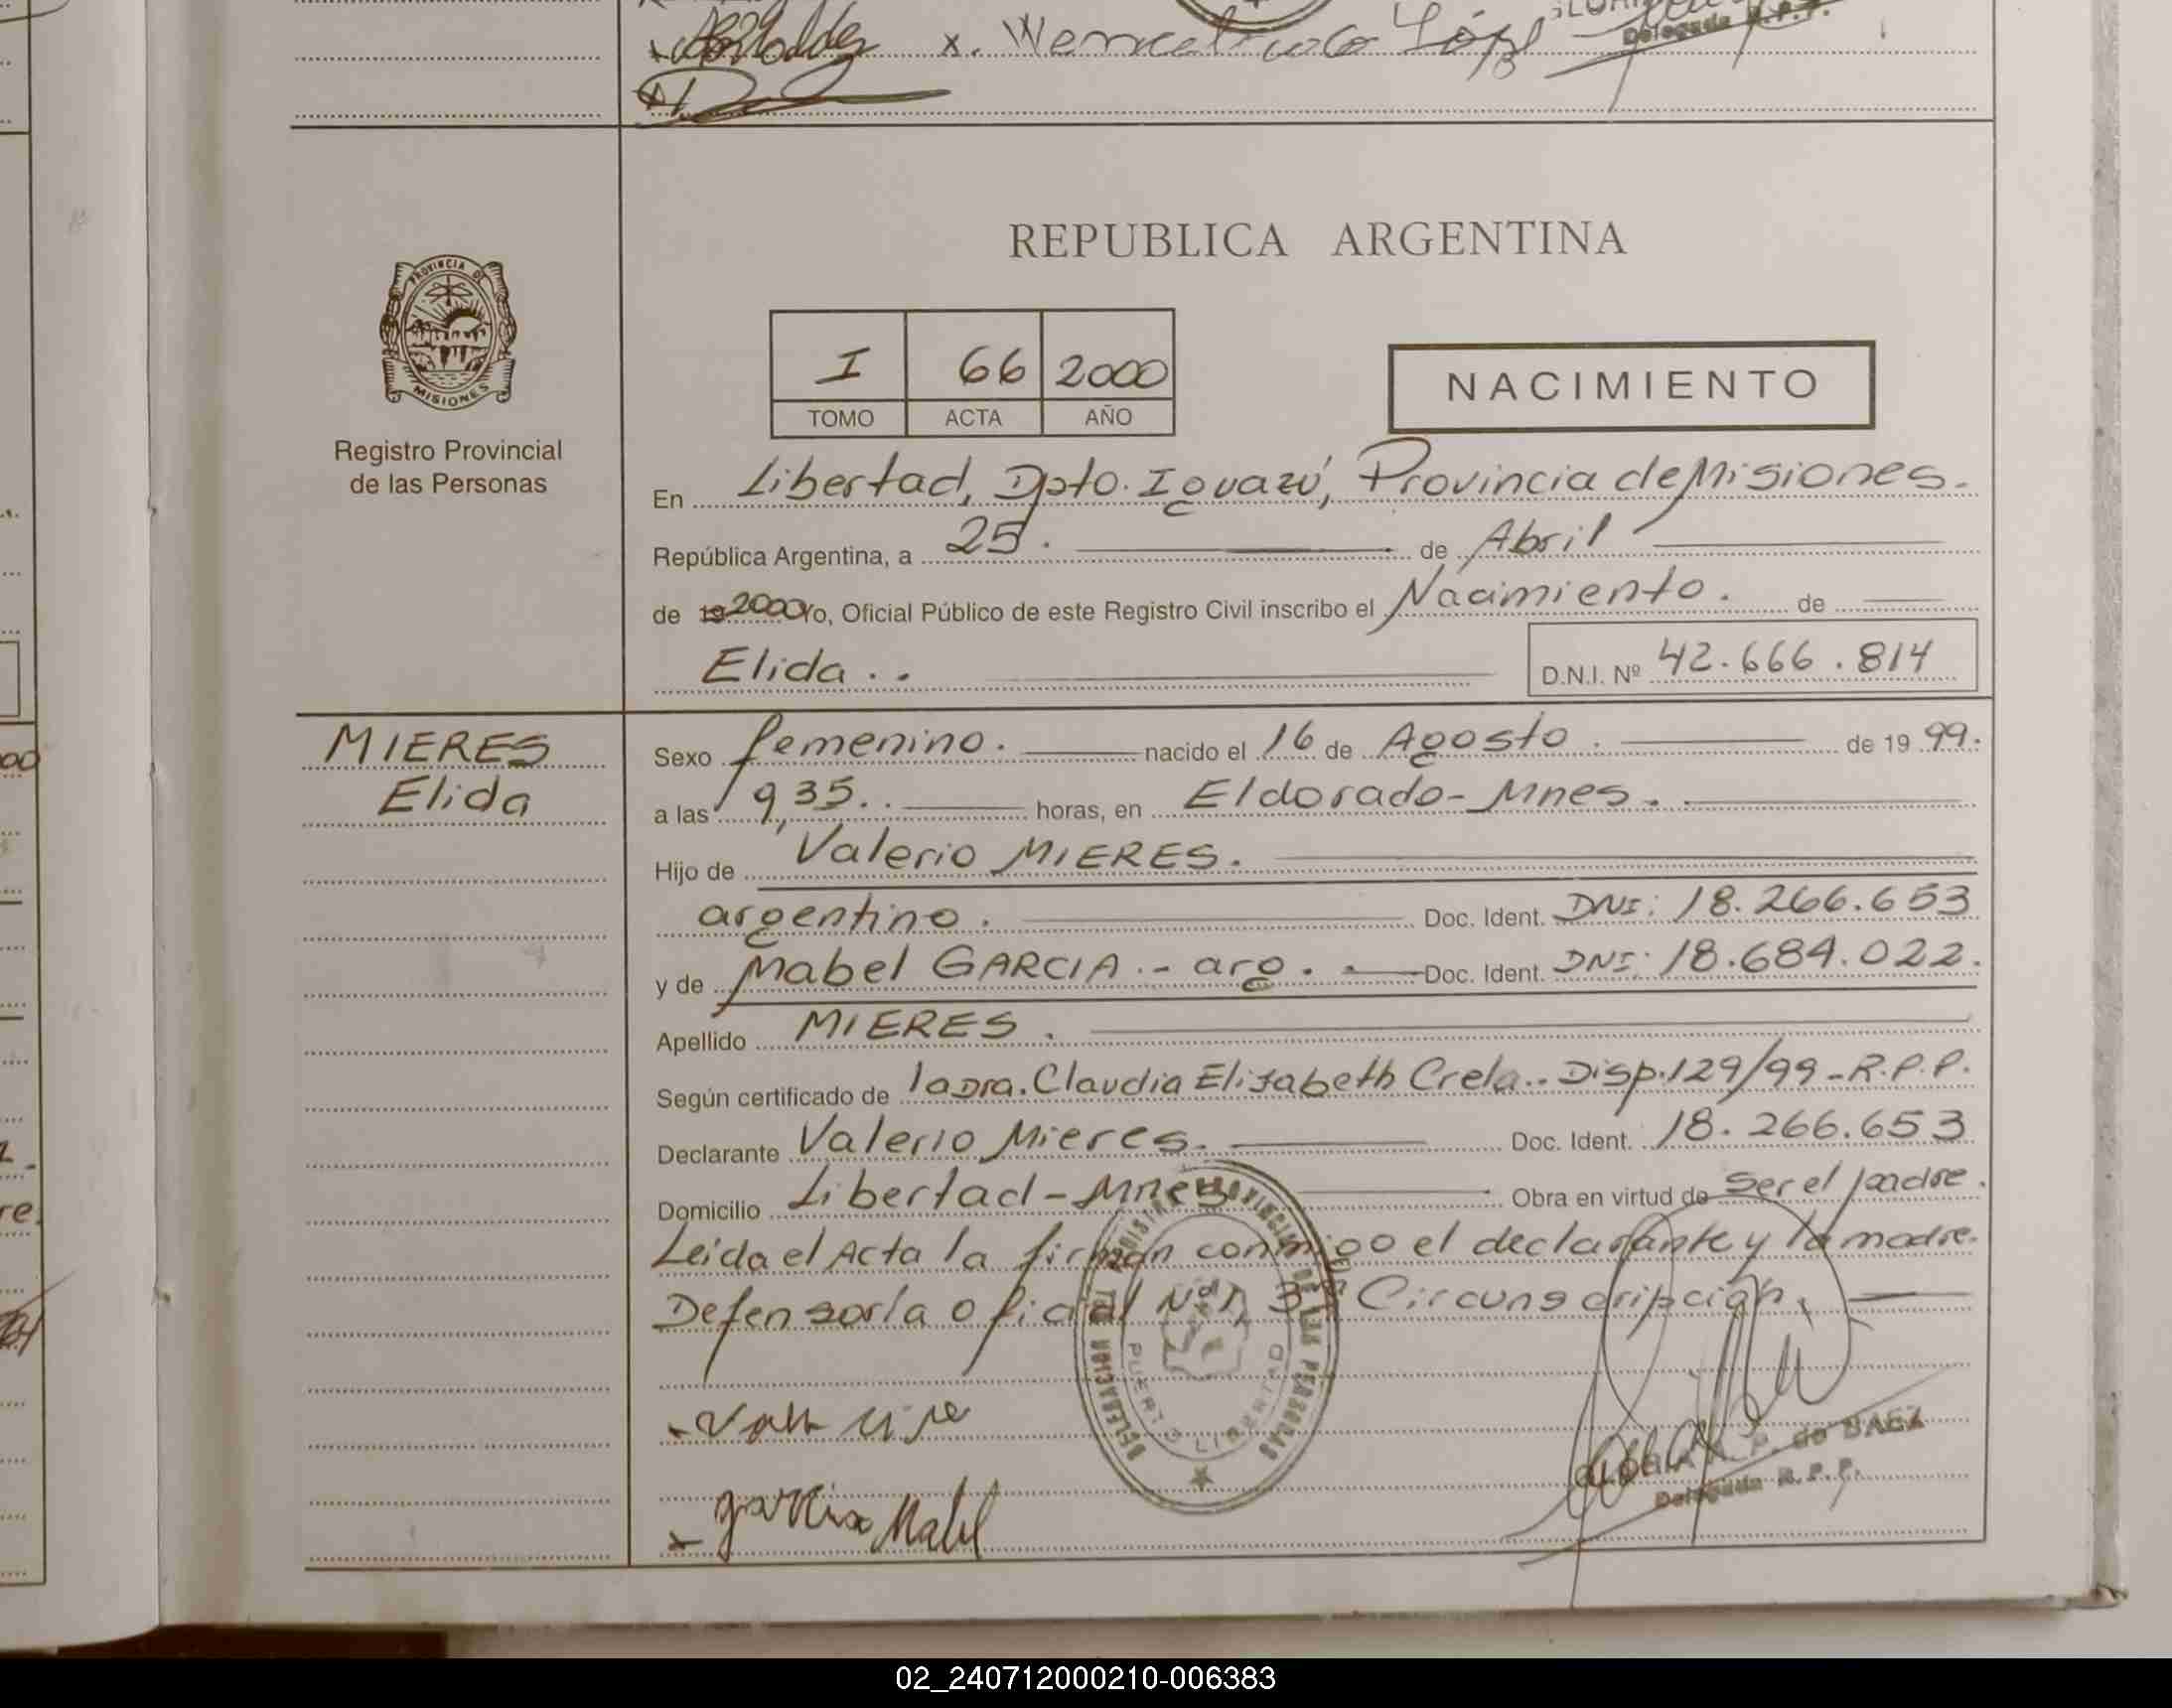 x. Wenceslao López
Delegada R.P.P.
PROVINCIA DE
MISIONES
Registro Provincial
de las Personas
REPUBLICA ARGENTINA
I 66 2000
TOMO ACTA AÑO
NACIMIENTO
En Libertad, Dpto. Iguazú, Provincia de Misiones.
República Argentina, a 25. de Abril
de 19 2000 Yo, Oficial Público de este Registro Civil inscribo el Nacimiento. de
Elida..
D.N.I. Nº 42.666.814
MIERES
Elida
Sexo femenino. nacido el 16 de Agosto. de 19 99.
a las 9,35.. horas, en Eldorado-Mnes.
Hijo de Valerio MIERES.
argentino. Doc. Ident. DNI: 18.266.653
y de Mabel GARCIA.- arg. Doc. Ident. DNI: 18.684.022.
Apellido MIERES.
Según certificado de la Dra. Claudia Elisabeth Crela.. Disp.129/99-R.P.P.
Declarante Valerio Mieres. Doc. Ident. 18.266.653
Domicilio Libertad-Mnes Obra en virtud de Ser el padre.
Leida el Acta la firman conmigo el declarante y la madre.
Defensoría Oficial Nº 1, 3ª Circunscripción.
DELEGACION REGISTRO PROVINCIAL DE LAS PERSONAS
PUERTO LIBERTAD
de BAEZ
Delegada R.P.P.
x garcia Mabel
02_240712000210-006383